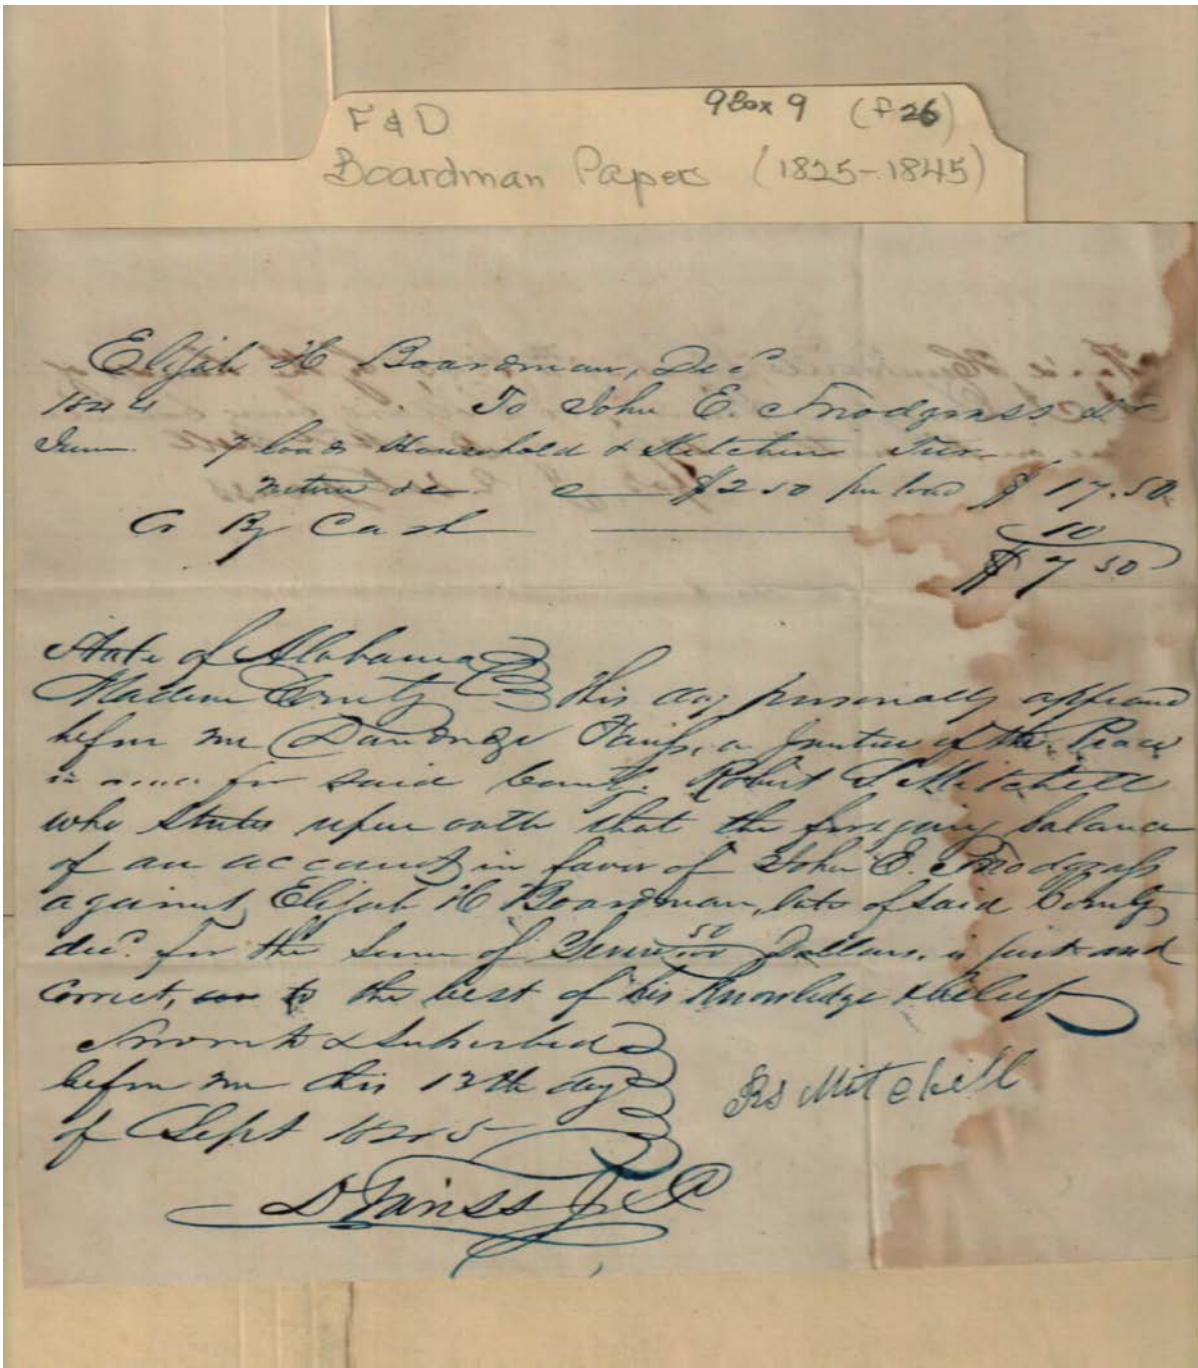 F & D 9 Box 9 (F26)
Boardman Papers (1825-1845)
Elijah H Boardman, Decd
1844 To John E. Snodgrass Dr
June 7 loads Household & Kitchen Fur-
niture &c @ $2 50 per load $ 17.50
Cr By Cash 10
$ 7 50
State of Alabama
Madison County This day personally appeared
before me Dandridge Fariss, a Justice of the Peace
in and for said County. Robert S Mitchell
who States upon oath that the foregoing balance
of an account in favor of John E. Snodgrass
against Elijah H Boardman, late of said County
decd. for the Sum of Seven 50/100 Dollars. is just and
Correct, to the best of his Knowledge & belief
Sworn to & Subscribed
before me this 12th day
of Sept 1845
RS Mitchell
D Fariss J P